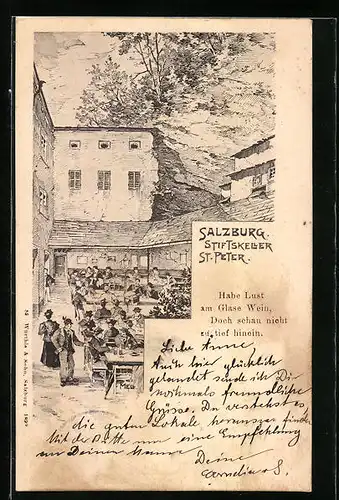 SALZBURG.
STIFTSKELLER
ST. PETER.
Habe Lust
am Glase Wein,
Doch schau nicht
zu tief hinein.
Liebe Anne,
Auch hier glücklich
gelandet sende ich Dir
nochmals freundliche
Grüsse. Du verstehst es
die guten Lokale heraus finden
Mit der Bitte um eine Empfehlung
an Deinen Mann
Deine
Cornelia S.
Würthle & Sohn, Salzburg 1898